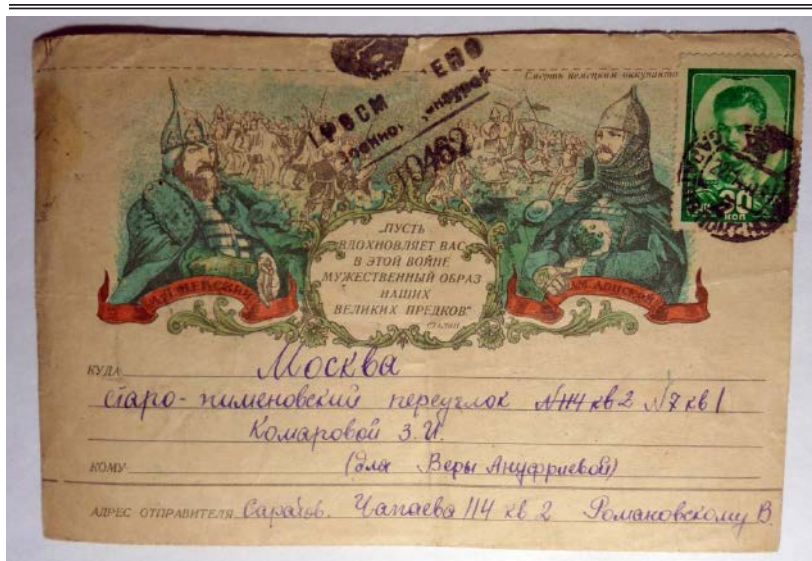 Смерть немецким оккупанто
ПРОСМ ЕНО
Военно
10462
30
КОП
„ПУСТЬ
ВДОХНОВЛЯЕТ ВАС
В ЭТОЙ ВОЙНЕ
МУЖЕСТВЕННЫЙ ОБРАЗ
НАШИХ
ВЕЛИКИХ ПРЕДКОВ“
СТАЛИН
АЛ. НЕВСКИЙ
ДМ. ДОНСКОЙ
КУДА Москва
старо-пименовский переулок N114 кв 2 N7 кв 1
Комаровой З. И.
КОМУ (для Веры Ануфриевой)
АДРЕС ОТПРАВИТЕЛЯ Саратов. Чапаева 114 кв 2 Романовскому В.